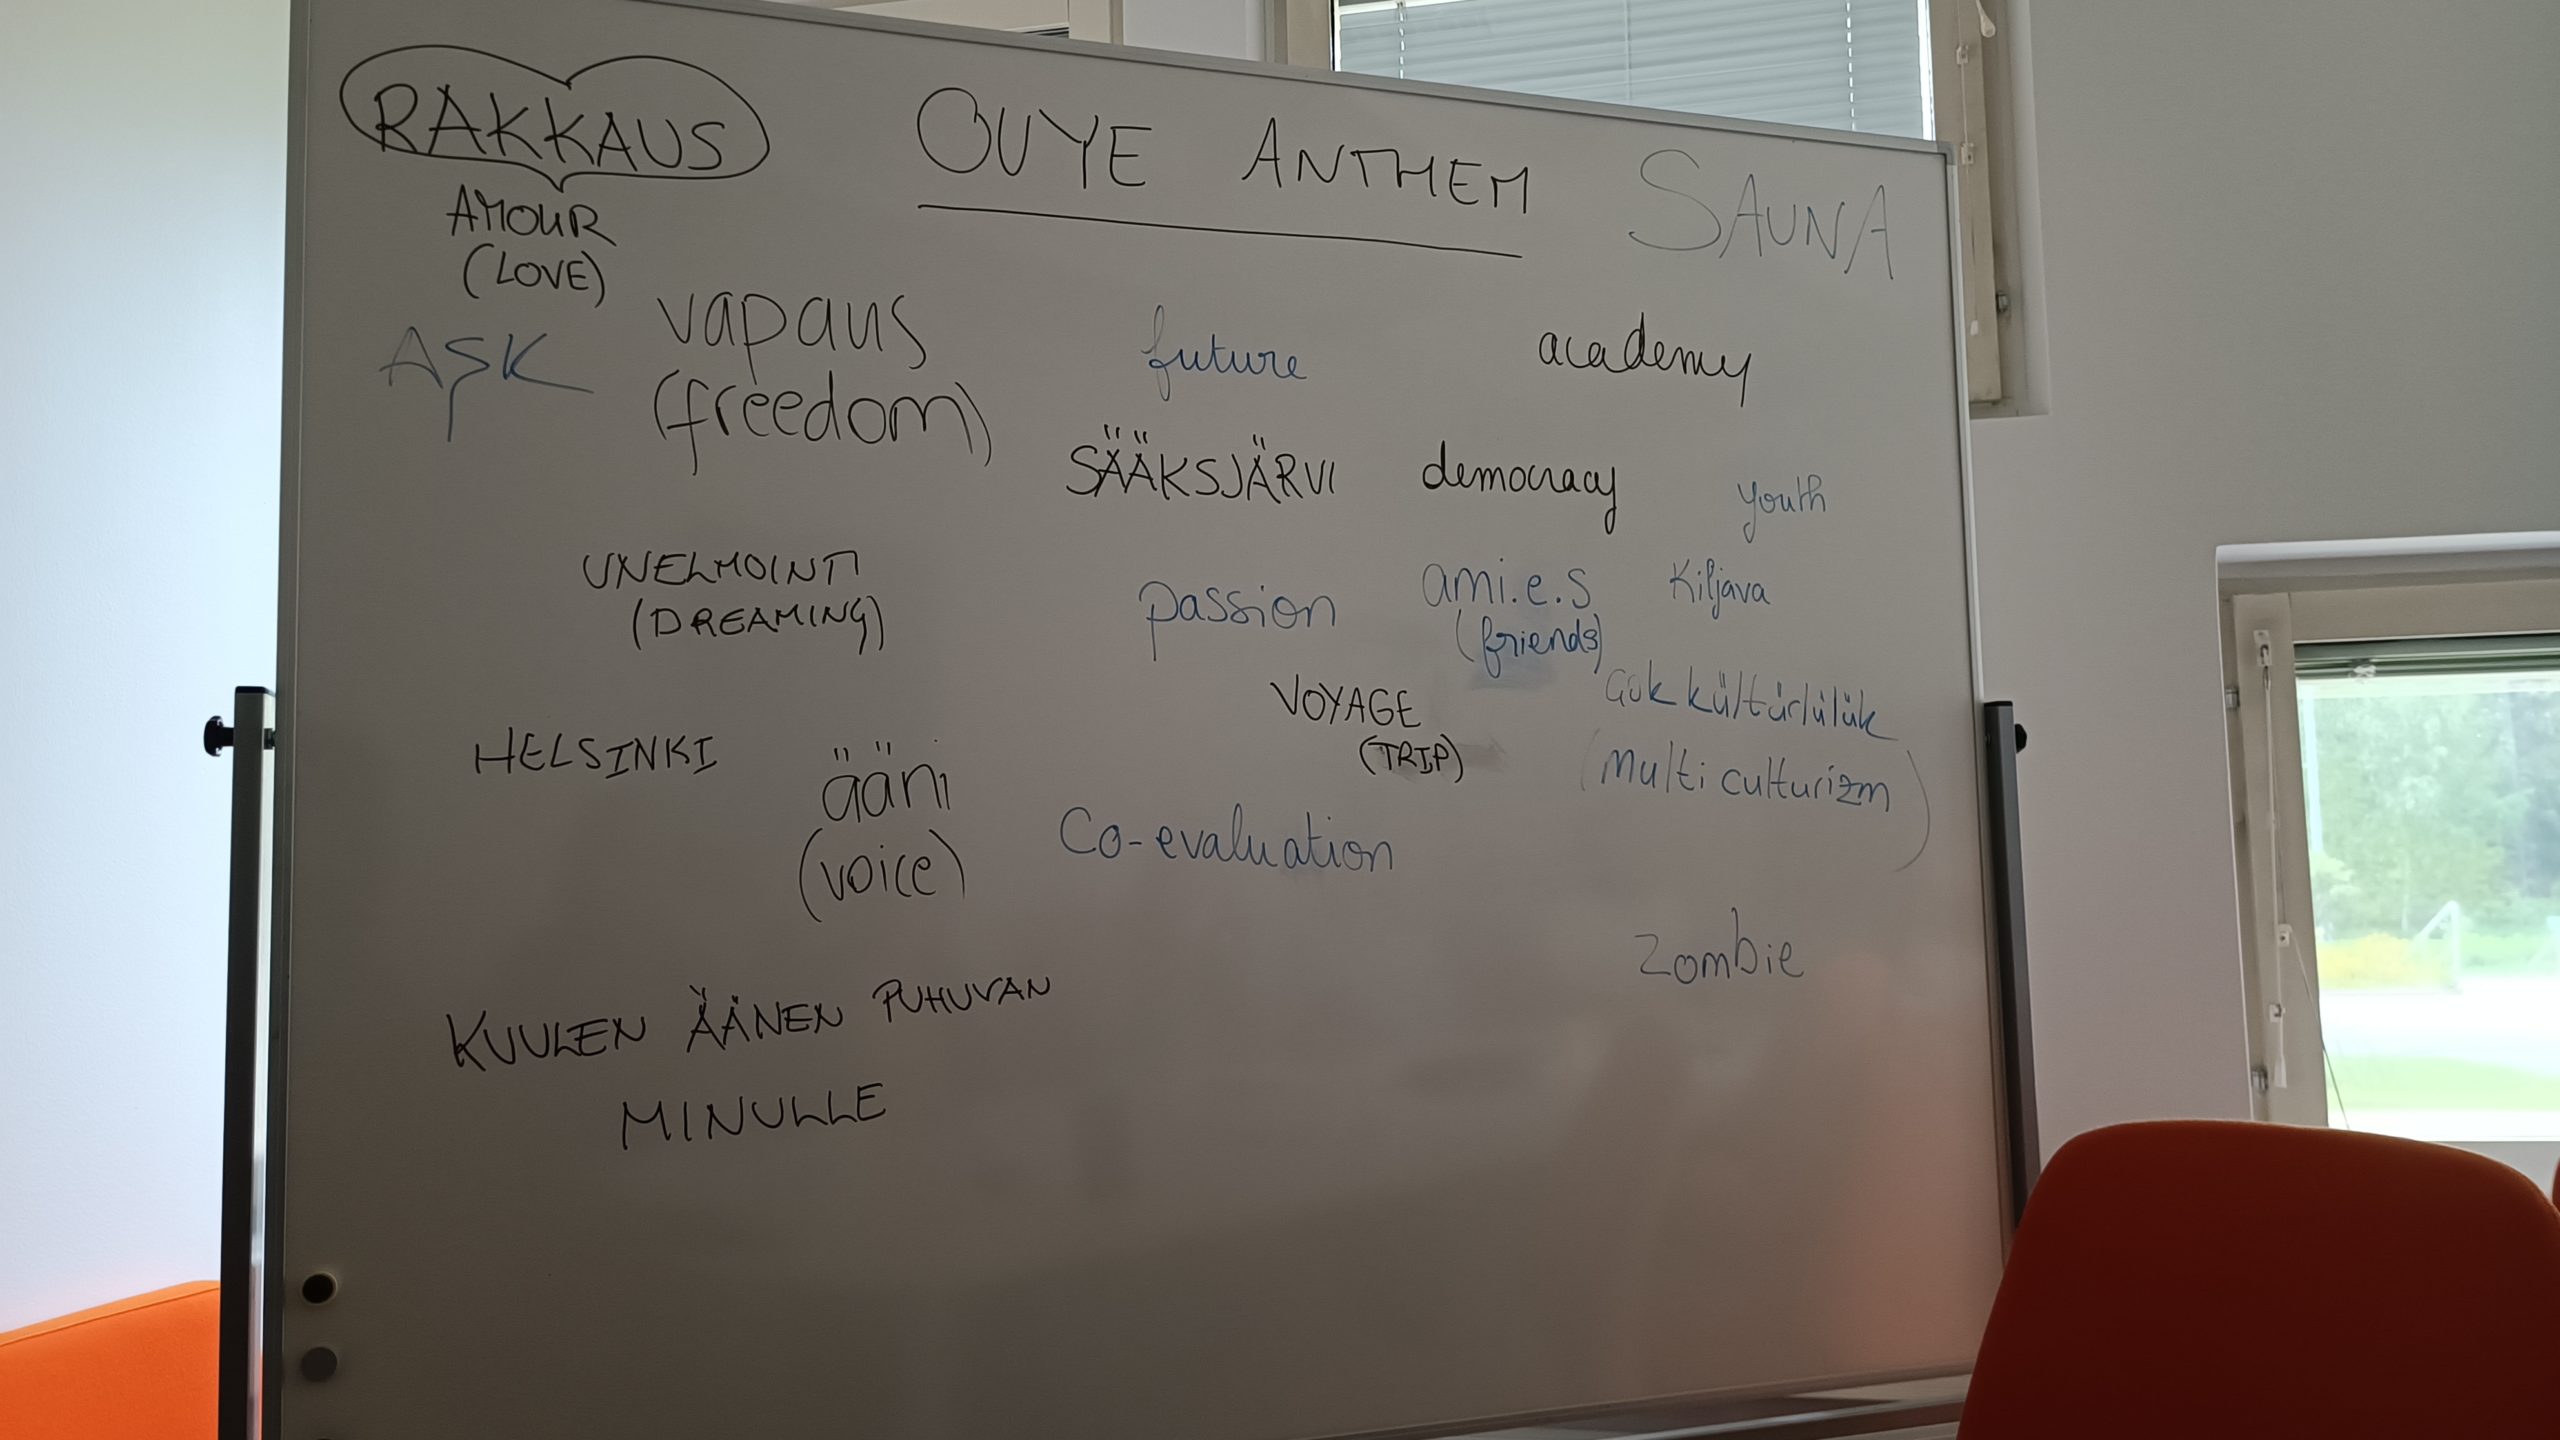 RAKKAUS
OUYE ANTHEM
SAUNA
AMOUR
(LOVE)
AŞK
vapaus
(freedom)
future
academy
SÄÄKSJÄRVI
democracy
youth
UNELMOINTI
(DREAMING)
passion
ami.e.s
(friends)
Kiljava
VOYAGE
(TRIP)
kültürlülük
(Multi culturizm)
HELSINKI
ääni
(voice)
Co-evaluation
zombie
KUULEN ÄÄNEN PUHUVAN
MINULLE